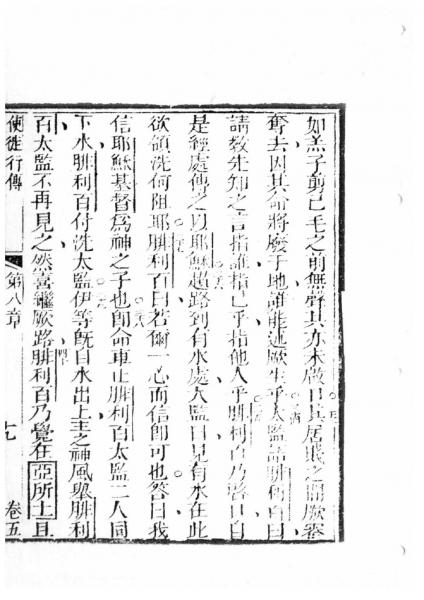 如羔子剪己毛之前無聲其亦未啟口其居賤之間厥審
奪去因其命將廢于地誰能述厥生乎太監話腓利百曰
請教先知之言指誰指己乎指他人乎腓利百乃啓口自
是經處傳之以耶穌趨路到有水處太監曰見有水在此
欲領洗何阻耶腓利百曰若爾一心而信即可也答曰我
信耶穌基督為神之子也即命車止腓利百太監二人同
下水腓利百付洗太監伊等既自水出上主之神風舉腓利
百太監不再見之然喜繼厥路腓利百乃覺在亞所士且
使徒行傳 第八章 七 卷五